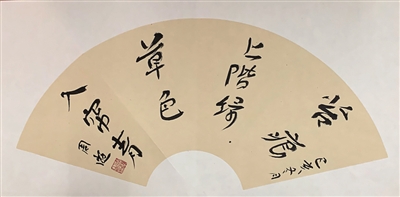 苔痕
己亥 月
上階綠
草色
入窗青
周